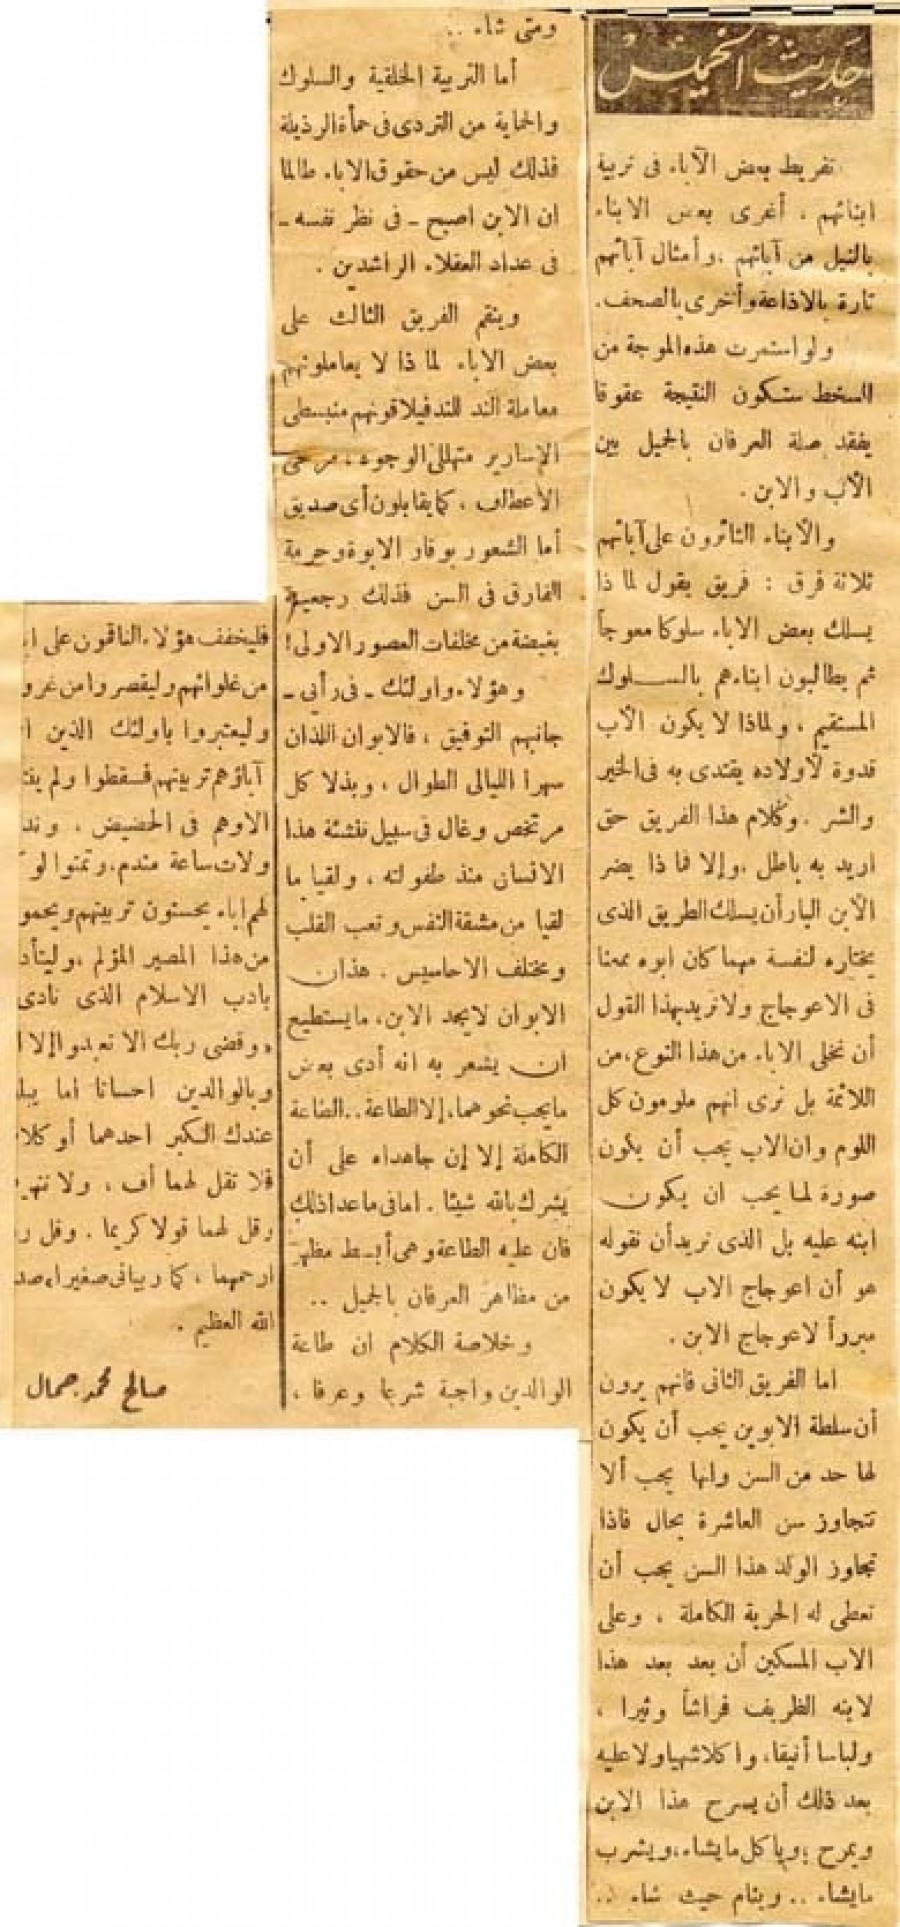 حديث الخميس
تفريط بعض الآباء فى تربية
ابنائهم ، أغرى بعض الابناء
بالنيل من آبائهم ، وأمثال آبائهم
تارة بالاذاعة وأخرى بالصحف .
ولو استمرت هذه الموجة من
السخط ستكون النتيجة عقوقا
يفقد صلة العرفان بالجميل بين
الأب والابن .
والأبناء الثائرون على آبائهم
ثلاثة فرق : فريق يقول لماذا
يسلك بعض الاباء سلوكا معوجاً
ثم يطالبون ابناءهم بالسلوك
المستقيم ، ولماذا لا يكون الأب
قدوة لأولاده يقتدى به فى الخير
والشر . وكلام هذا الفريق حق
اريد به باطل . وإلا فماذا يضر
الأبن البار أن يسلك الطريق الذى
يختاره لنفسة مهما كان ابوه ممعنا
فى الاعوجاج ولا نريد بهذا القول
أن نخلى الاباء من هذا النوع ، من
اللائمة بل نرى انهم ملومون كل
اللوم وان الاب يجب أن يكون
صورة لما يجب ان يكون
ابنه عليه بل الذى نريد أن نقوله
هو أن اعوجاج الاب لا يكون
مبرراً لاعوجاج الابن .
اما الفريق الثانى فانهم يرون
أن سلطة الابوين يجب أن يكون
لها حد من السن وانها يجب ألا
تتجاوز سن العاشرة بحال فاذا
تجاوز الولد هذا السن يجب أن
تعطى له الحرية الكاملة ، وعلى
الاب المسكين أن يعد بعد هذا
لابنه الظريف فراشاً وثيرا ،
ولباسا أنيقا ، واكلا شهيا ولا عليه
بعد ذلك أن يسرح هذا الابن
ويمرح ؛ وياكل ما يشاء ، ويشرب
ما يشاء .. وينام حيث شاء ..
ومتى شاء ..
أما التربية الخلقية والسلوك
والحماية من التردى فى حمأة الرذيلة
فذلك ليس من حقوق الاباء طالما
ان الابن اصبح ـ فى نظر نفسه ـ
فى عداد العقلاء الراشدين .
وينقم الفريق الثالث على
بعض الاباء لماذا لا يعاملونهم
معاملة الند للند فيلاقونهم منبسطى
الإسارير متهللى الوجوه ، مرخى
الأعطاف ، كما يقابلون أى صديق
أما الشعور بوقار الابوة وحرمة
الفارق فى السن فذلك رجعية
بغيضة من مخلفات العصور الاولى !
وهؤلاء واولئك ـ فى رأيي ـ
جانبهم التوفيق ، فالابوان اللذان
سهرا الليالى الطوال ، وبذلا كل
مرتخص وغال فى سبيل تنشئة هذا
الانسان منذ طفولته ، ولقيا ما
لقيا من مشقة النفس وتعب القلب
ومختلف الاحاسيس . هذان
الابوان لا يجد الابن ، ما يستطيع
ان يشعر به انه أدى بعض
ما يجب نحوهما ، إلا الطاعة .. الطاعة
الكاملة إلا إن جاهداه على أن
يشرك بالله شيئا . اما فى ما عدا ذلك
فان عليه الطاعة وهى أبسط مظهر
من مظاهر العرفان بالجميل ..
وخلاصة الكلام ان طاعة
الوالدين واجبة شرعا وعرفا ،
فليخفف هؤلاء الناقمون على
من غلوائهم وليقصروا من
وليعتبروا باولئك الذين
آباؤهم تربيتهم فسقطوا ولم
الاوهم فى الحضيض ،
ولات ساعة مندم ، وتمنوا لو
لهم اباء يحسنون تربيتهم
من هذا المصير المؤلم ،
بادب الاسلام الذى نادى
« وقضى ربك الا تعبدوا إلا
وبالوالدين احسانا اما
عندك الكبر احدهما أو
فلا تقل لهما أف ، ولا
وقل لهما قولا كريما . وقل
ارحمهما ، كما ربيانى صغيرا »
الله العظيم .
صالح محمد جمال